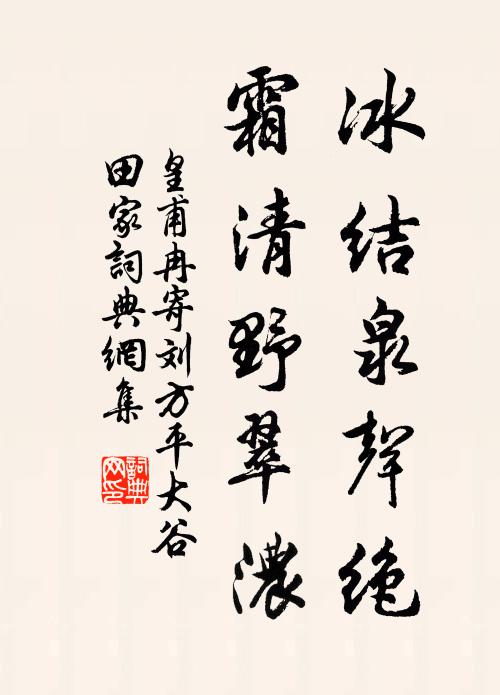 冰结泉聲绝
霜清野翠濃
皇甫冉寄刘方平大谷
田家詞典網集
詞典网印